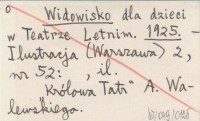 o Widowisko dla dzieci
w Teatrze Letnim. 1925. –
Ilustracja (Warszawa) 2,
nr 52: , il.
"Królowa Tatr" A. Wa-
lewskiego.